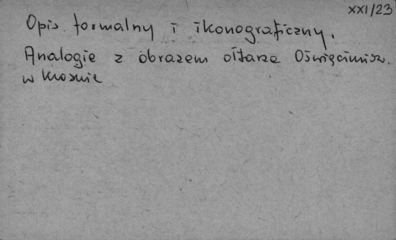 XXI/23
Opis formalny i ikonograficzny.
Analogie z obrazem ołtarza Oświęcimów.
w Krośnie